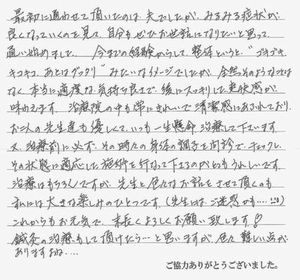 最初に通わせて頂いたのは 夫でしたが、みるみる症状が
良くなっていくのを見て、自分もぜひお世話になりたい…と思って
通い始めました。今までの経験からして、整体というと "ゴキゴキ
キコキコ、あとはグッタリ" みたいなイメージでしたが、全然そのようなのでは
なく 本当に適度な気持ち良さで 後にスッキリした爽快感が
味わえます。治療院の中も常にきれいで清潔感にあふれており、
お二人の先生達も優しくて、いつも一生懸命 治療して下さいます
又、治療前に必ず、その時々の身体の調子を問診で、チェックし
その状態に適応した施術を行なって下さるのがとてもうれしいです。
治療はもちろんですが 先生と色々なお話をさせて頂くのも
私には大きな楽しみのひとつです (先生は、ご迷惑かも…)
これからもお元気で、末長くよろしくお願い致します!
鍼灸の治療もして頂けたら…と思いますが、色々難しい点が
ありますよね…。
ご協力ありがとうございました。